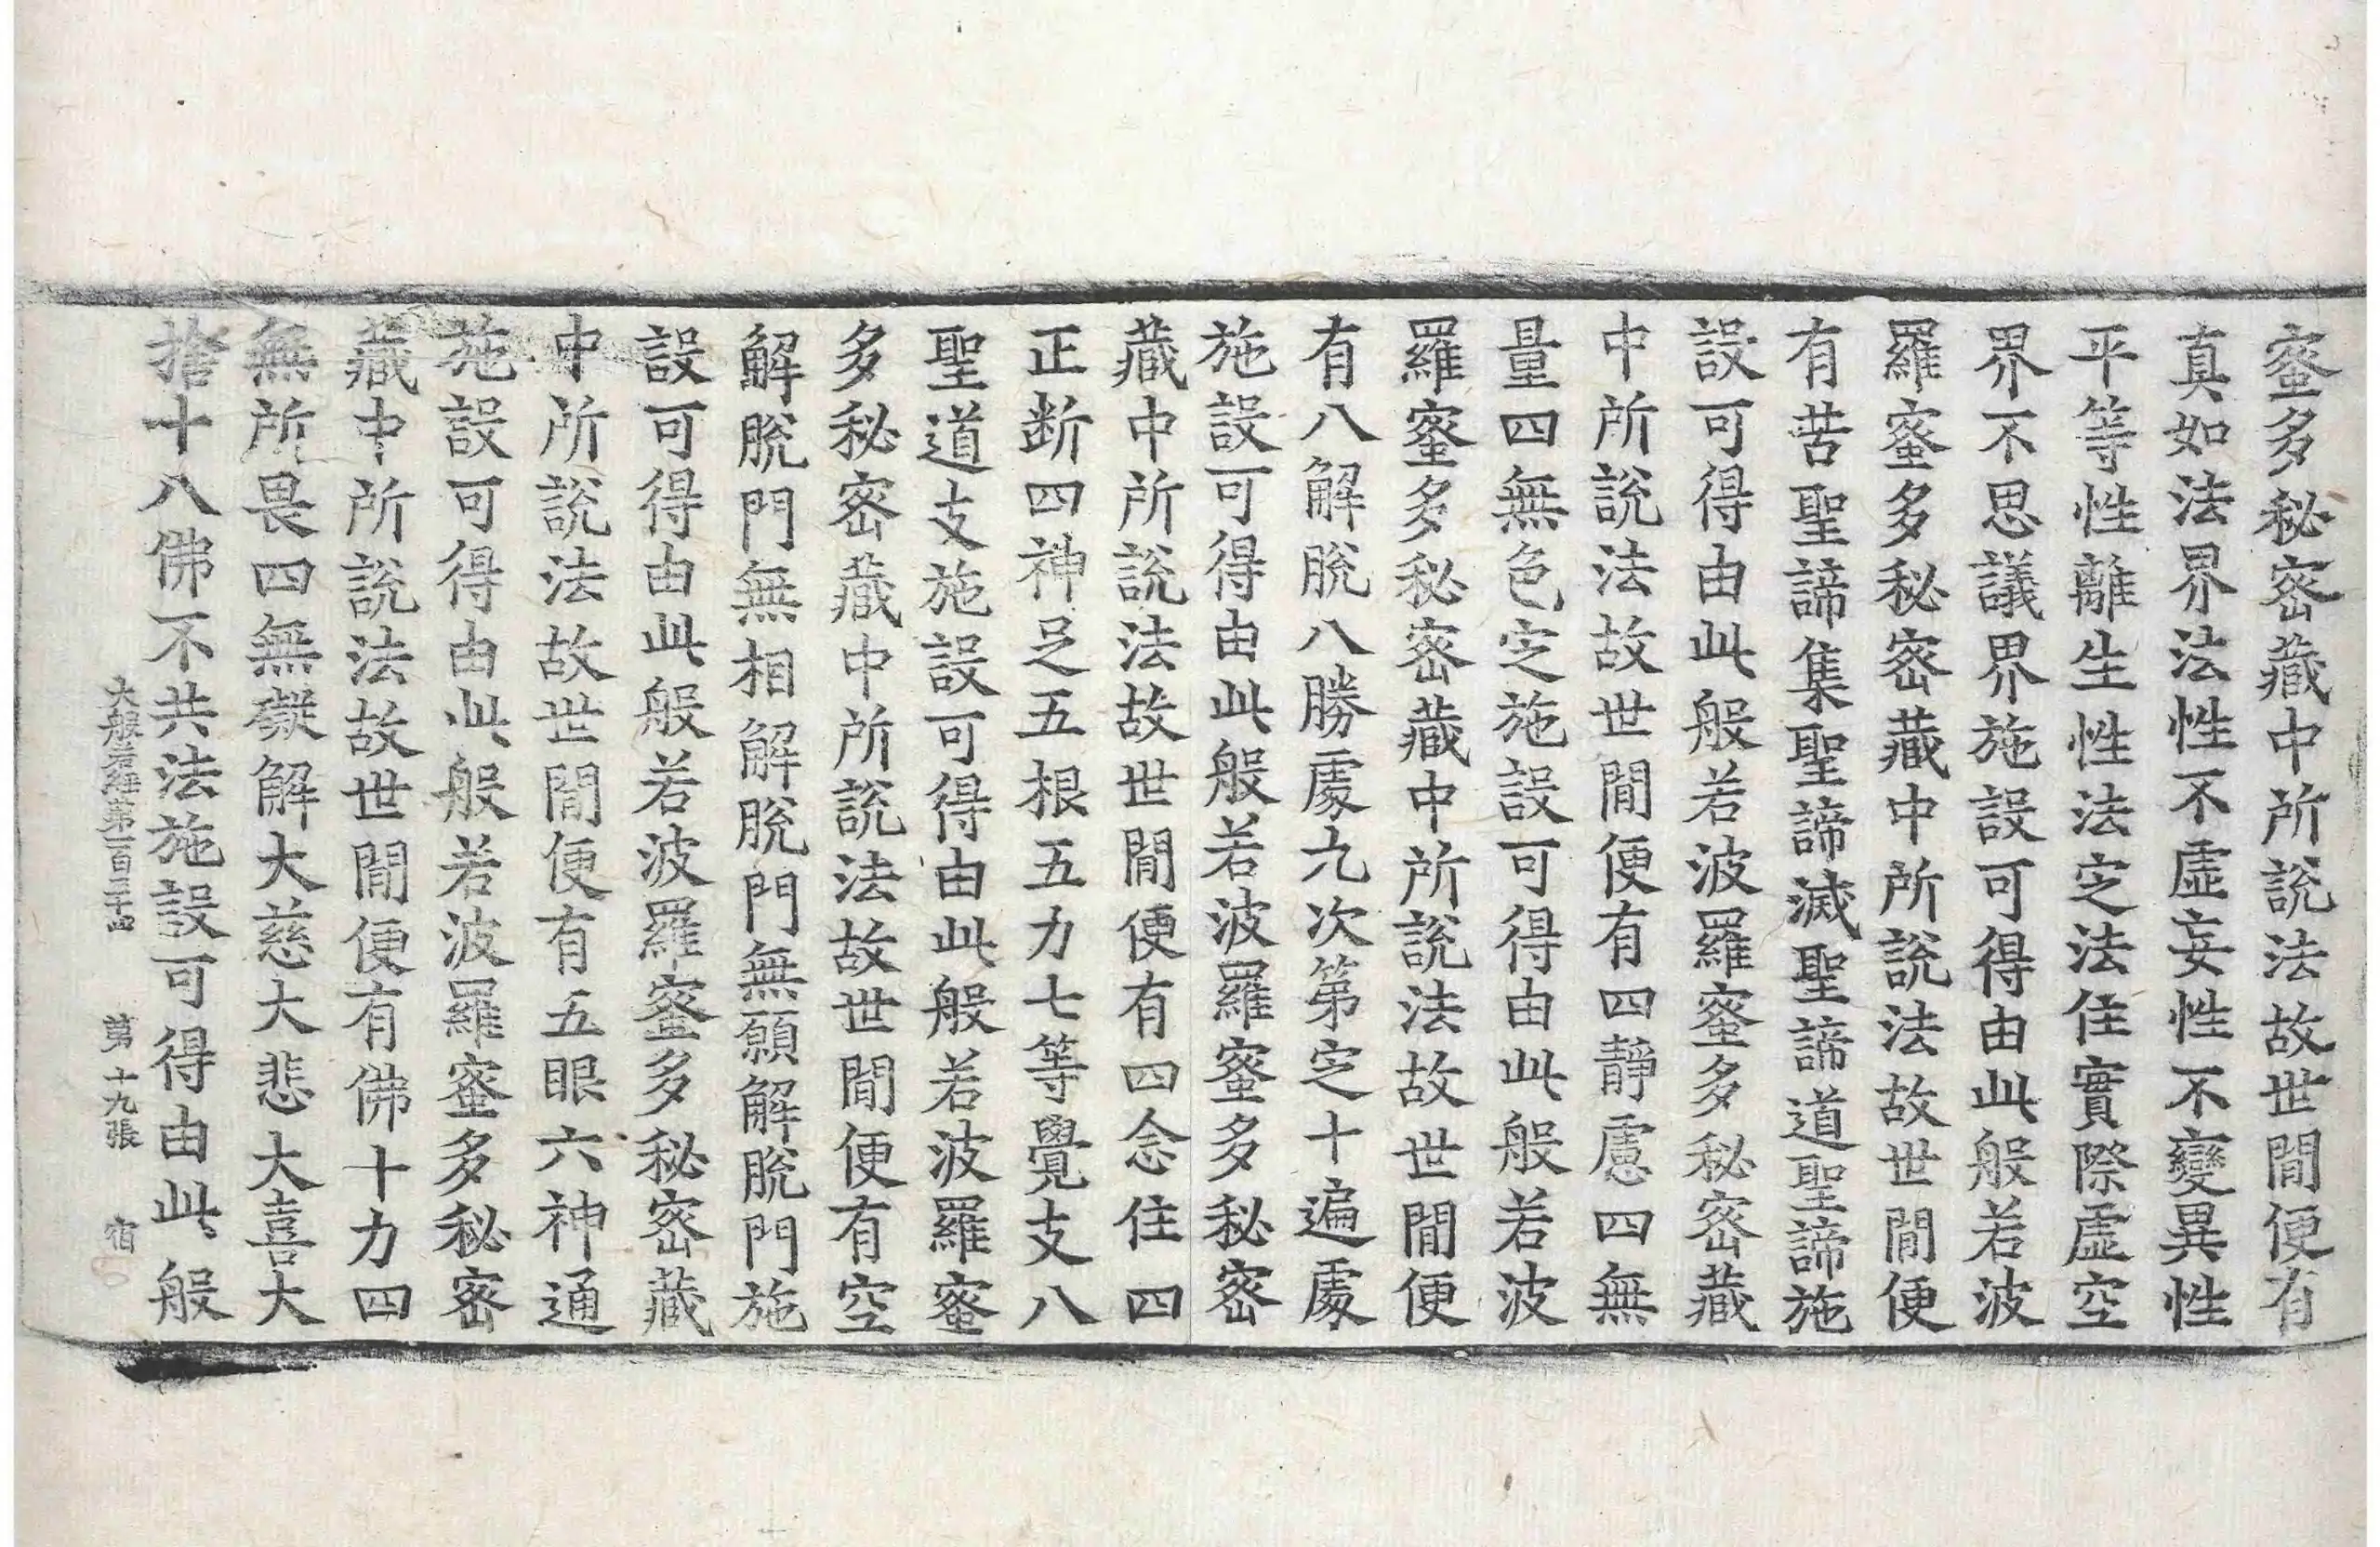 蜜多秘密藏中所說法故世間便有
真如法界法性不虛妄性不變異性
平等性離生性法定法住實際虛空
界不思議界施設可得由此般若波
羅蜜多秘密藏中所說法故世間便
有苦聖諦集聖諦滅聖諦道聖諦施
設可得由此般若波羅蜜多秘密藏
中所說法故世間便有四靜慮四無
量四無色定施設可得由此般若波
羅蜜多秘密藏中所說法故世間便
有八解脫八勝處九次第定十遍處
施設可得由此般若波羅蜜多秘密
藏中所說法故世間便有四念住四
正斷四神足五根五力七等覺支八
聖道支施設可得由此般若波羅蜜
多秘密藏中所說法故世間便有空
解脫門無相解脫門無願解脫門施
設可得由此般若波羅蜜多秘密藏
中所說法故世間便有五眼六神通
施設可得由此般若波羅蜜多秘密
藏中所說法故世間便有佛十力四
無所畏四無礙解大慈大悲大喜大
捨十八佛不共法施設可得由此般
大般若經第一百二十四 第十九張 宿